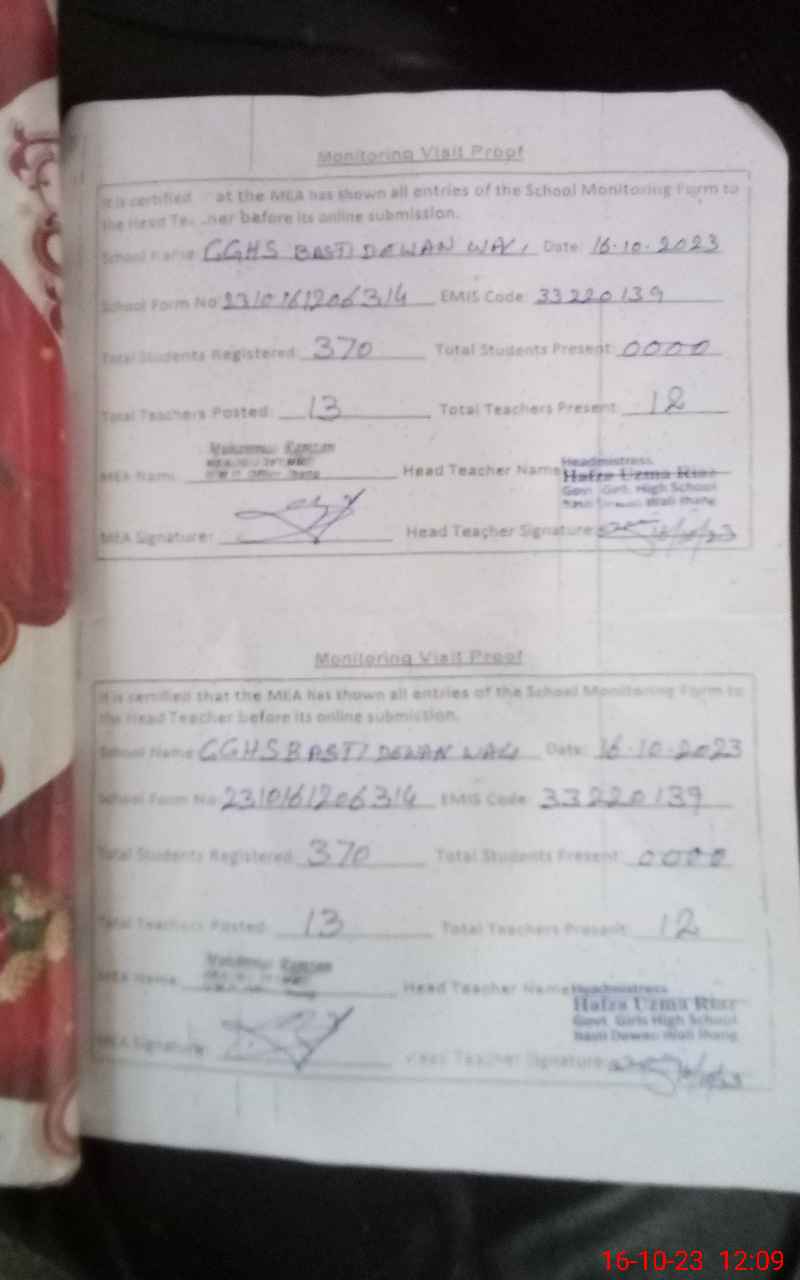 Monitoring Visit Proof
It is certified at the MEA has shown all entries of the School Monitoring Form to
the Head before its online submission.
School Name GGHS BASTI DEWAN WALI Date: 16.10.2023
School Form No 2310161206314 EMIS Code: 33220139
Total Students Registered: 370 Total Students Present: 0000
Total Teachers Posted: 13 Total Teachers Present: 12
MEA Name Head Teacher Name
Headmistress
Hafza Uzma Riaz
Govt. Girls High School
Basti Dewan Wali Jhang
MEA Signature: Head Teacher Signature:
Monitoring Visit Proof
It is certified that the MEA has shown all entries of the School Monitoring Form to
the Head Teacher before its online submission.
School Name GGHS BASTI DEWAN WALI Date: 16.10.2023
School Form No 2310161206314 EMIS Code: 33220139
Total Students Registered: 370 Total Students Present: 0000
Total Teachers Posted: 13 Total Teachers Present: 12
MEA Name Head Teacher Name
Headmistress
Hafza Uzma Riaz
Govt. Girls High School
Basti Dewan Wali Jhang
MEA Signature: Head Teacher Signature:
16-10-23 12:09